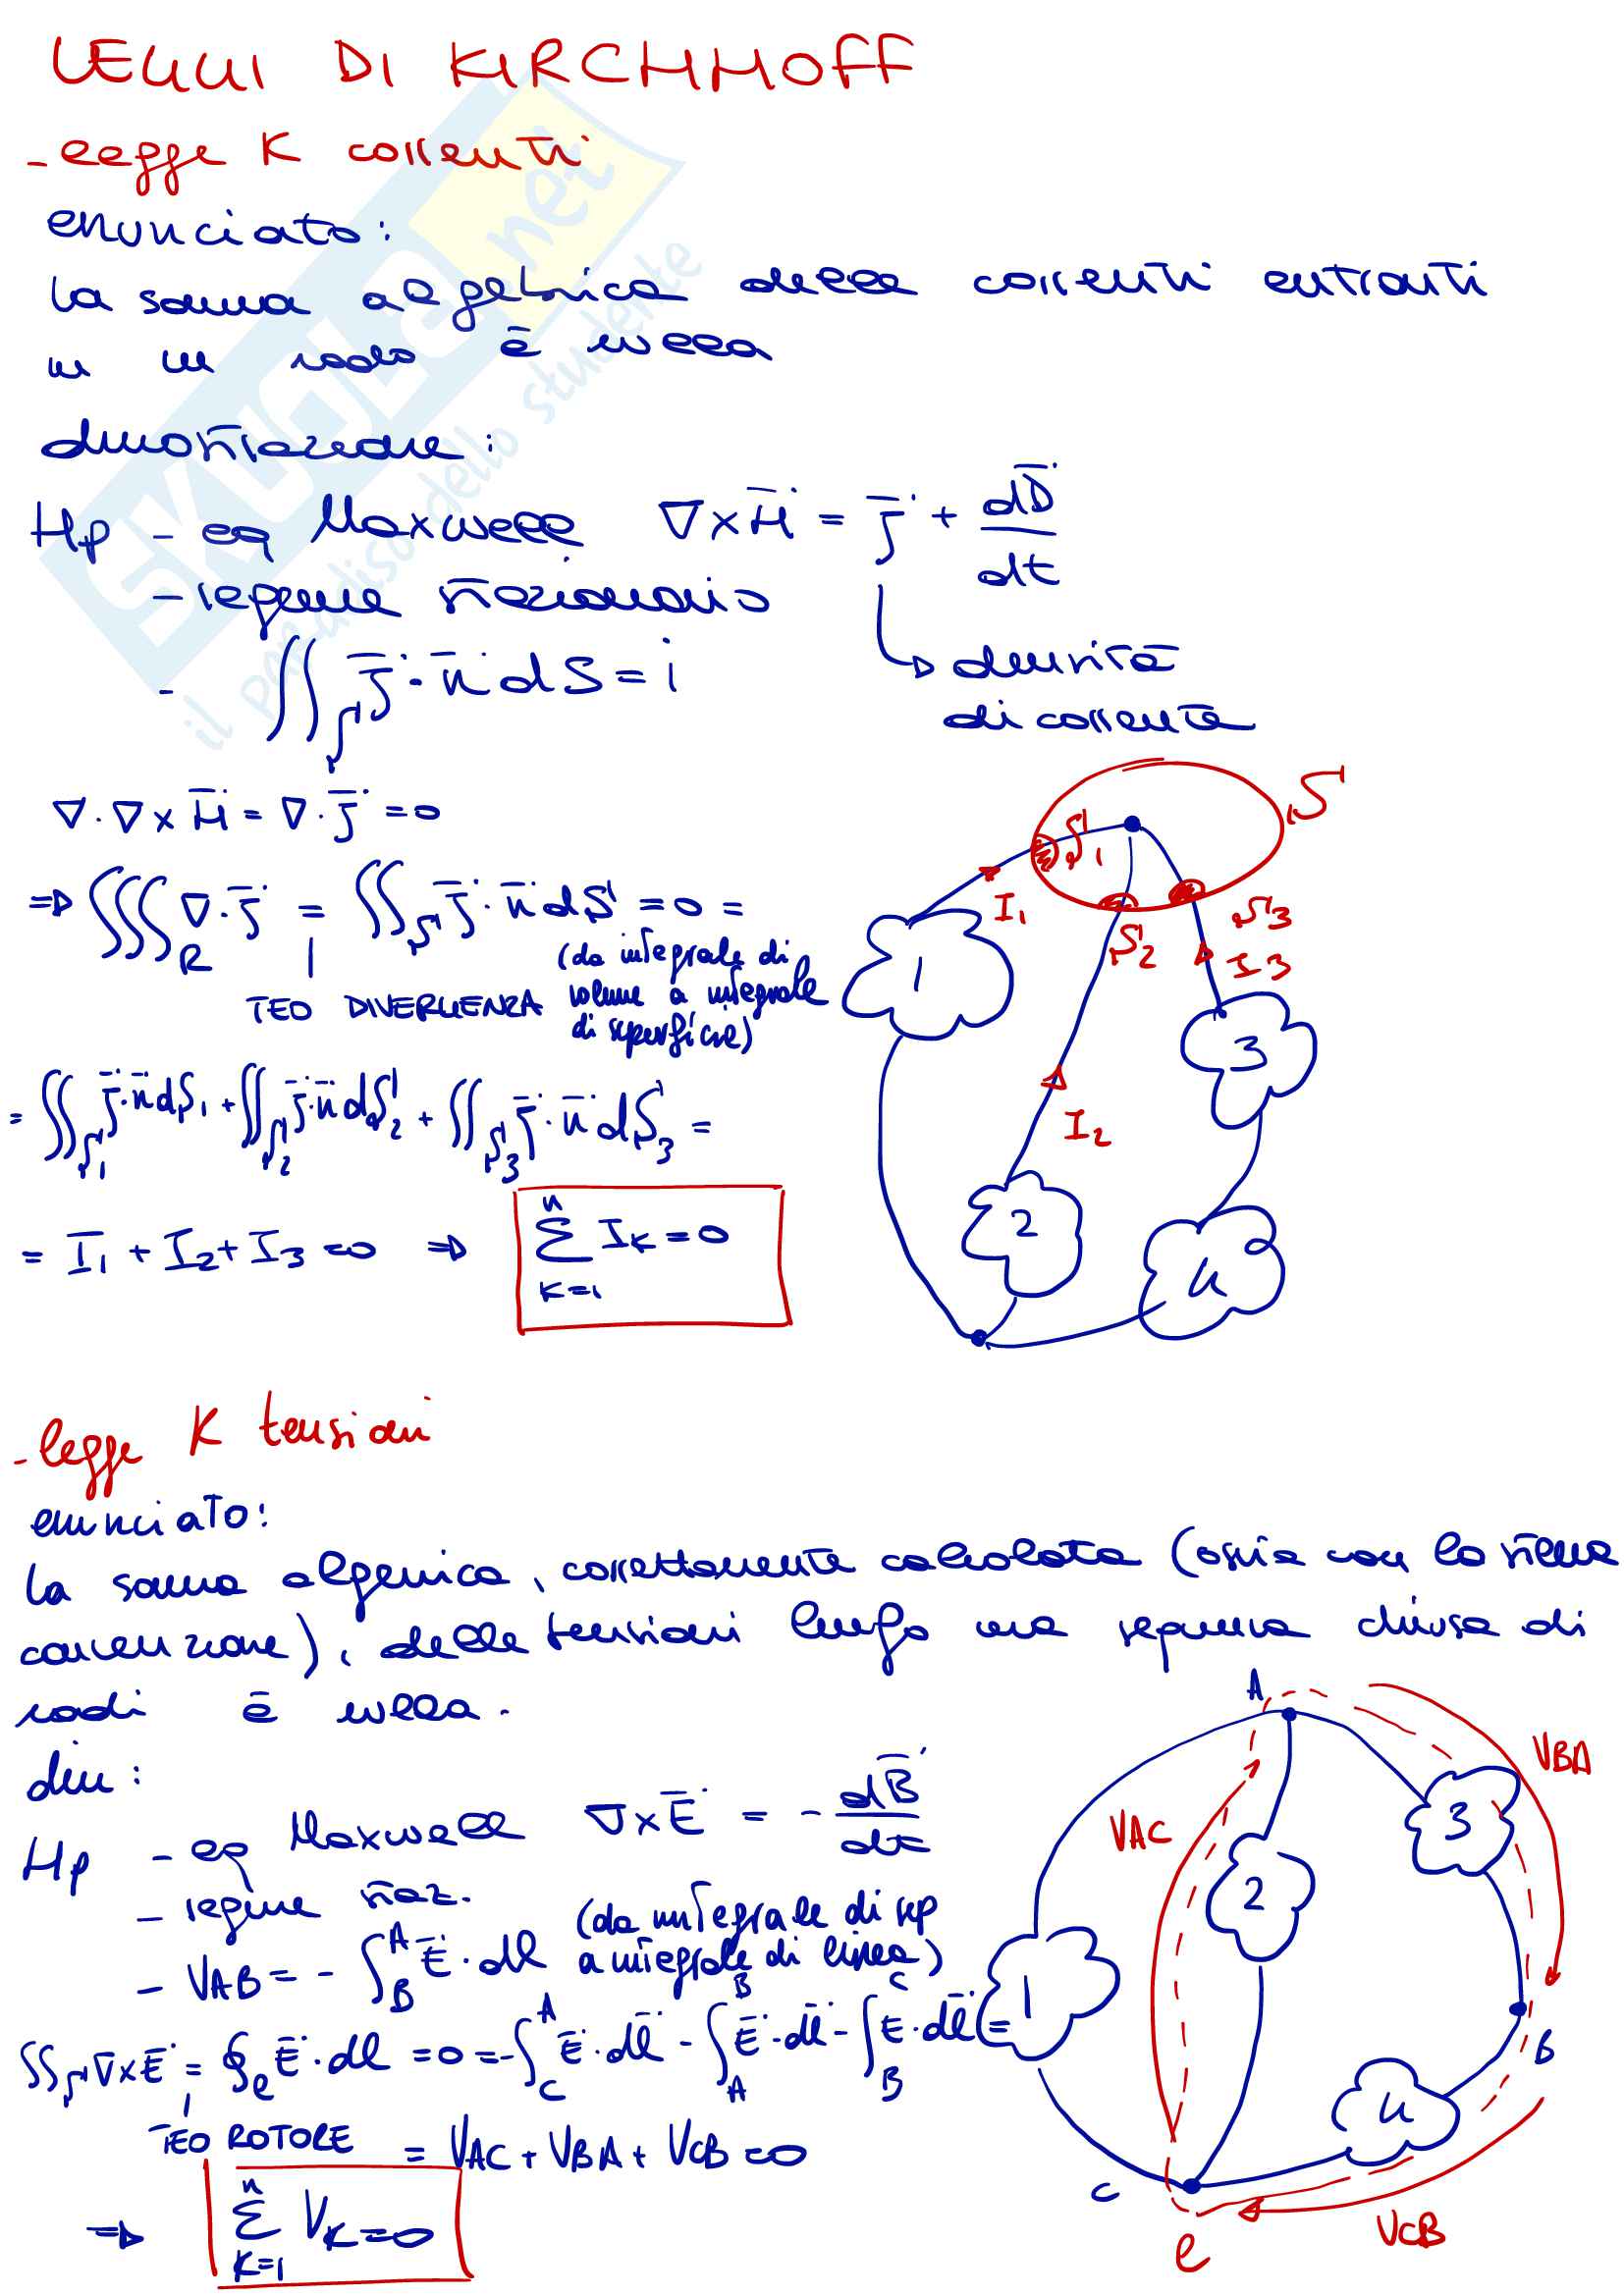 LEGGI DI KIRCHHOFF
- legge K correnti
enunciato:
la somma algebrica delle correnti entranti
in un nodo è nulla
dimostrazione:
Hp - eq Maxwell ∇×H̄ = J̄ + dD̄/dt
- regime stazionario
↳ densità
di corrente
- ∬_S J̄·n̄ dS = i
∇·∇×H̄ = ∇·J̄ = 0
⇒ ∭_R ∇·J̄ = ∬_S J̄·n̄ dS = 0 =
TEO DIVERGENZA
(da integrale di
volume a integrale
di superficie)
= ∬_S1 J̄·n̄ dS1 + ∬_S2 J̄·n̄ dS2 + ∬_S3 J̄·n̄ dS3 =
= I1 + I2 + I3 = 0 ⇒ ∑_{K=1}^{n} IK = 0
S
S1
I1
S2
S3
I3
1
3
I2
2
4
- legge K tensioni
enunciato:
la somma algebrica, correttamente calcolata (ossia con la stessa
convenzione), delle tensioni lungo una sequenza chiusa di
nodi è nulla.
dim:
Hp - eq Maxwell ∇×Ē = - dB̄/dt
- regime staz.
- VAB = - ∫_B^A Ē·dl (da integrale di sup
a integrale di linea)
∬_S ∇×Ē = ∮_l Ē·dl = 0 = -∫_C^A Ē·dl̄ - ∫_A^B Ē·dl̄ - ∫_B^C Ē·dl̄ =
TEO ROTORE = VAC + VBA + VCB = 0
⇒ ∑_{K=1}^{n} VK = 0
A
VBA
VAC
3
2
1
B
4
C
VCB
l
SKUOLA.net
il paradiso dello studente